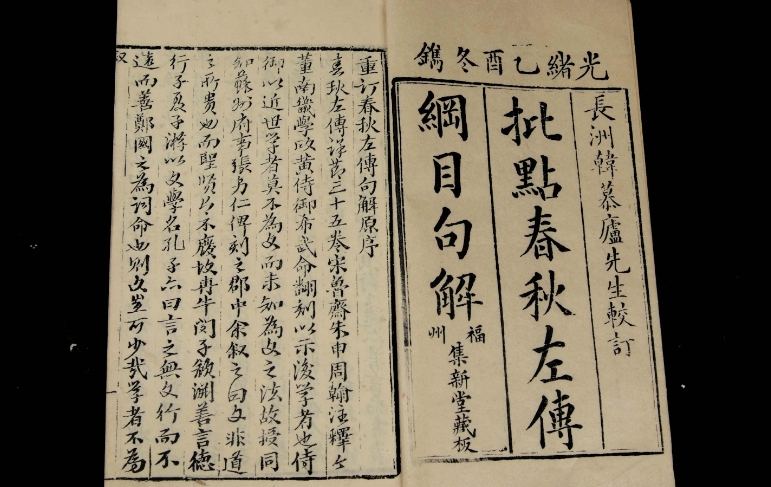 光緒乙酉冬鐫
長洲韓慕廬先生較訂
批點春秋左傳
綱目句解
福州
集新堂藏板
重訂春秋左傳句解原序
春秋左傳詳節三十五卷宋魯齋朱申周翰注釋今
董南畿學政黃侍御希武命翻刻以示後學者也侍
御以近世學者莫不為文而未知為文之法故授同
知蘇州府事張仁俾刻之郡中余叙之曰文非道
之所貴也而聖賢不廢故冉牛閔子顏淵善言德
行子夏子游以文學名孔子亦曰言之無文行而不
遠而善鄭國之為詞命也則文豈可少哉學者不為